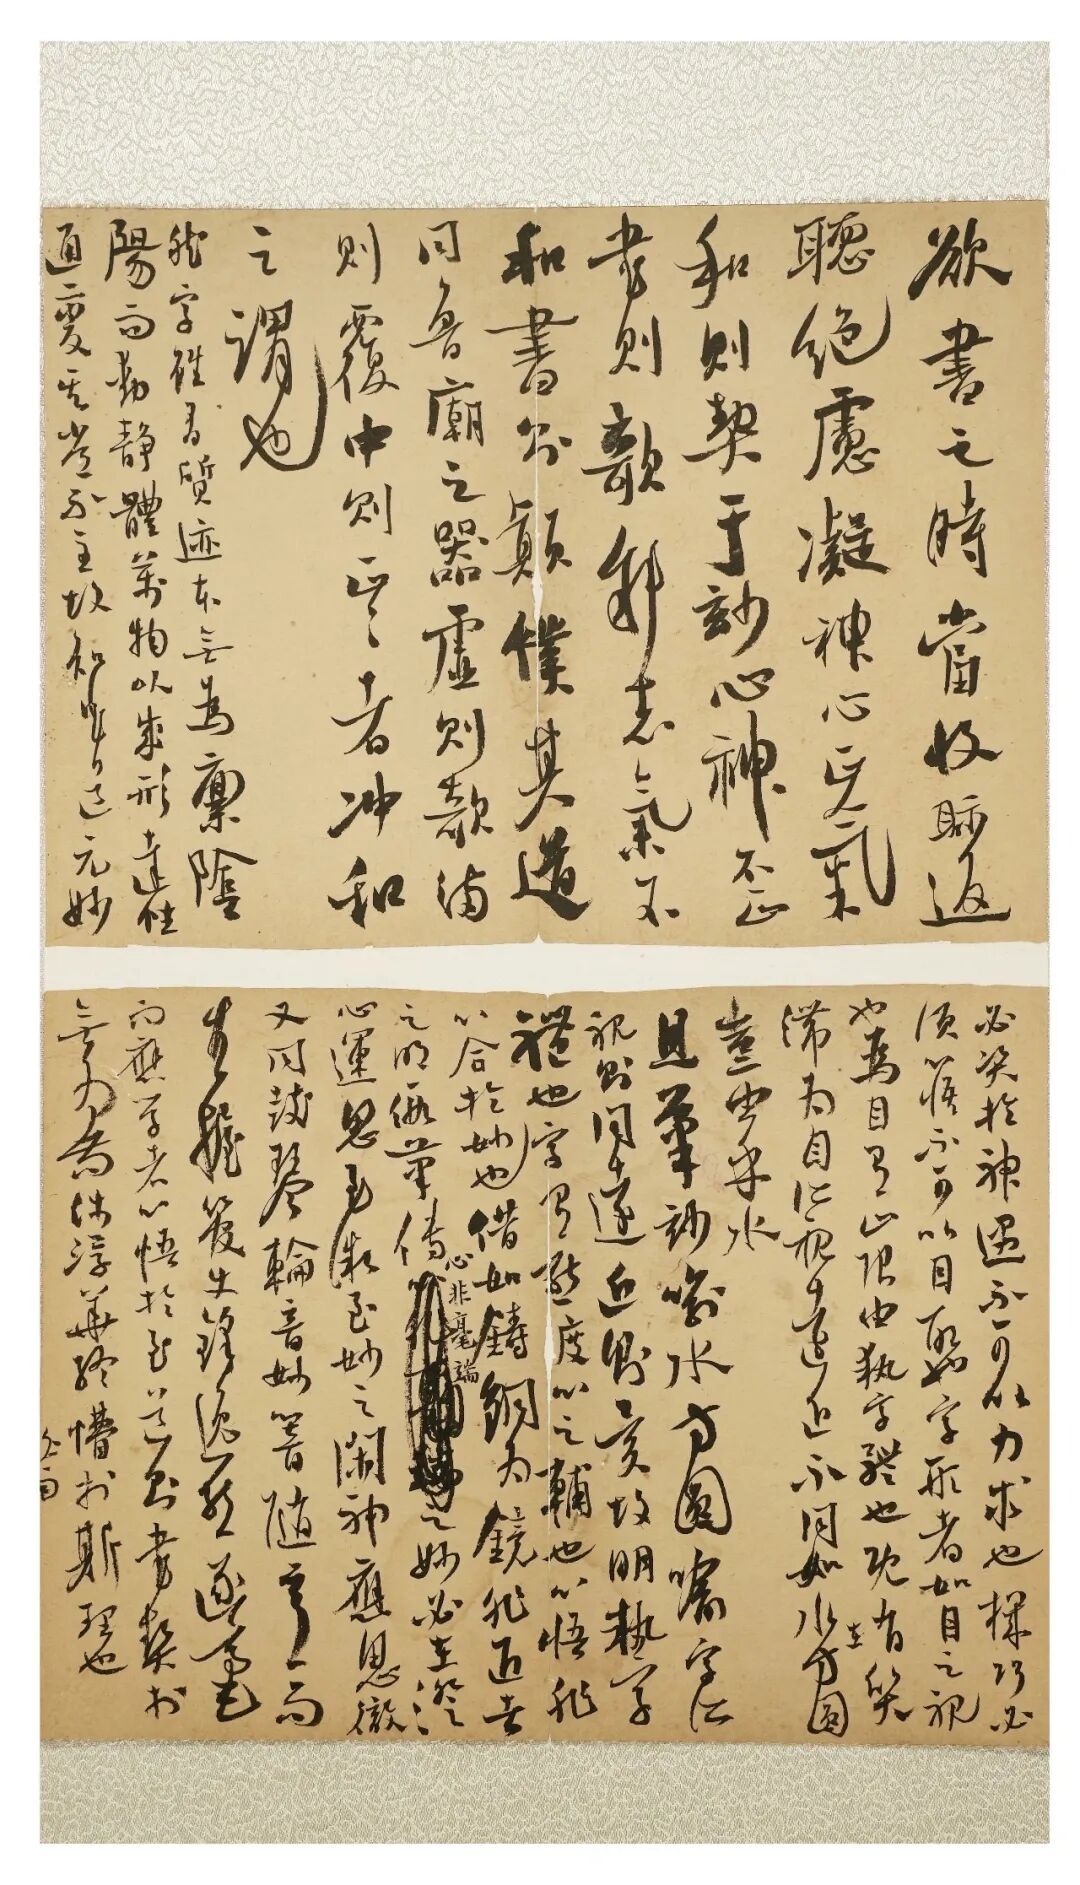 欲書之時當收眎返
聽絶慮凝神心正氣
和則契于玅心神不正
書則欹斜志氣不
和書必顛仆其道
同魯廟之器虛則欹滿
則覆中則正正者冲和
之謂也
然字雖有質迹本無為稟陰
陽而動静體萬物以成形達性
通變其常不主故知書道元妙
必資於神遇不可以力求也機巧必
須以心悟不可以目取字形者如目之視
也為目有止限由執字體也既有質
滯為目所視遠近不同如水在方圓
豈由乎水
且筆玅喻水方圓喻字所
視則同遠近則異故明執字
體也字有態度心之輔也心悟非
心合於妙也借如鑄銅為鏡非匠者
之明假筆傳心非毫端之妙必在澄
心運思至微至妙之間神應思徹
又同鼓琴輪音妙響隨意而
生握管使鋒逸態逐毫
而應學者心悟於至道則書契於
無為苟涉浮華終懵於斯理也